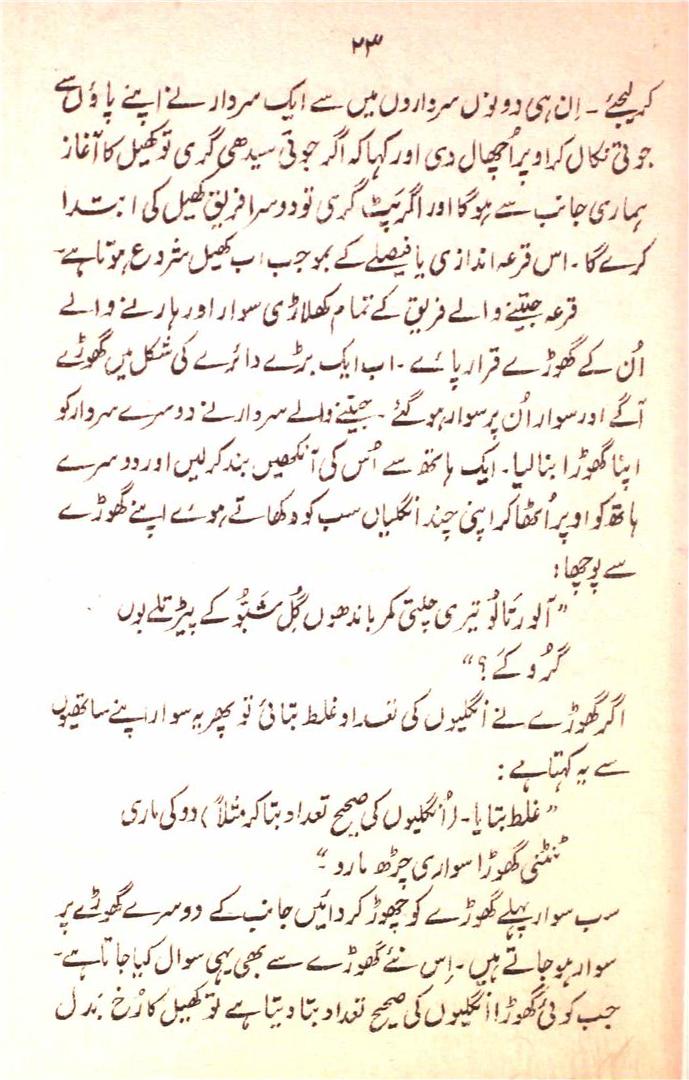 ۲۳
کر لیجئے ۔ اِن ہی دونوں سرداروں میں سے ایک سردار نے اپنے پاؤں سے
جوتی نکال کر اوپر اُچھال دی اور کہا کہ اگر جوتی سیدھی گری تو کھیل کا آغاز
ہماری جانب سے ہوگا اور اگر پَٹ گری تو دوسرا فریق کھیل کی ابتدا
کرے گا ۔ اس قرعہ اندازی یا فیصلے کے بموجب اب کھیل شروع ہوتا ہے ۔
قرعہ جیتنے والے فریق کے تمام کھلاڑی سوار اور ہارنے والے
اُن کے گھوڑے قرار پائے ۔ اب ایک بڑے دائرے کی شکل میں گھوڑے
آگے اور سوار اُن پر سوار ہو گئے ۔ جیتنے والے سردار نے دوسرے سردار کو
اپنا گھوڑا بنا لیا ۔ ایک ہاتھ سے اُس کی آنکھیں بند کر لیں اور دوسرے
ہاتھ کو اوپر اُٹھا کر اپنی چند انگلیاں سب کو دکھاتے ہوئے اپنے گھوڑے
سے پوچھا :
” آلو رَتالُو تیری چلتی کمر باندھوں گُل شَبُّو کے پیڑ تلے بوں
گُرو کَے ؟ “
اگر گھوڑے نے انگلیوں کی تعداد غلط بتائی تو پھر یہ سوار اپنے ساتھیوں
سے یہ کہتا ہے :
” غلط بتایا ۔ (اُنگلیوں کی صحیح تعداد بتا کر مثلاً) دو کی ماری
ٹنٹنی گھوڑا سواری چڑھ مارو ۔ “
سب سوار پہلے گھوڑے کو چھوڑ کر دائیں جانب کے دوسرے گھوڑے پر
سوار ہو جاتے ہیں ۔ اِس نئے گھوڑے سے بھی یہی سوال کیا جاتا ہے ۔
جب کوئی گھوڑا انگلیوں کی صحیح تعداد بتا دیتا ہے تو کھیل کا رُخ بدل